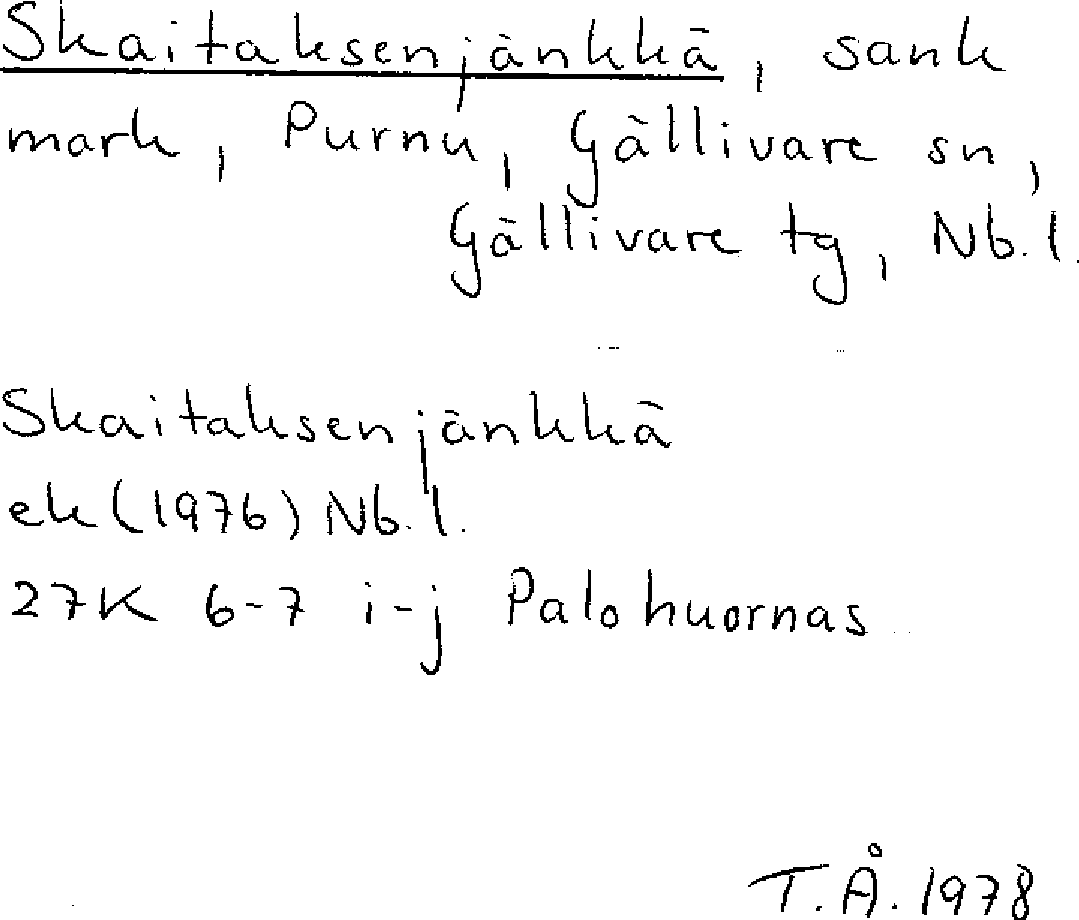 Skaitaksenjänkkä, sank
mark, Purnu, Gällivare sn,
Gällivare tg, Nb.l.
Skaitaksenjänkkä
ek (1976) Nb.l.
27K 6-7 i-j Palohuornas
T.Å. 1978